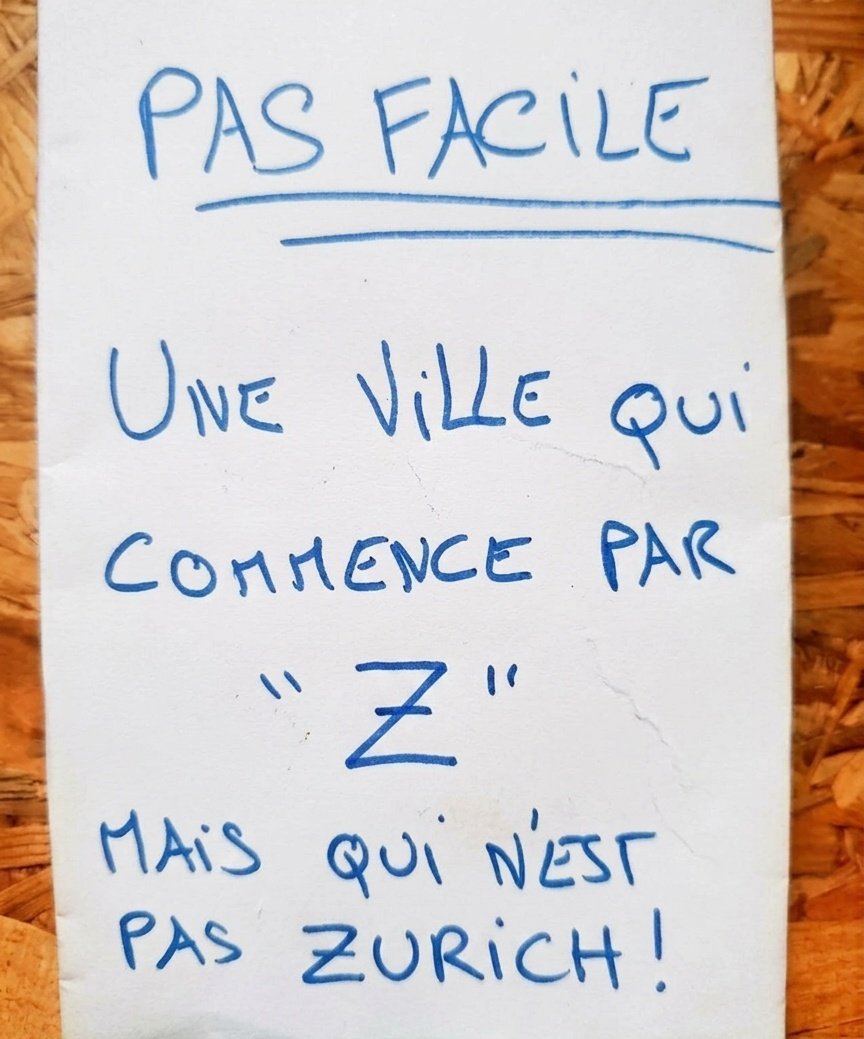 PAS FACILE
UNE ViLLE QUi
COMMENCE PAR
"Z"
MAiS QUi N'EST
PAS ZURiCH!